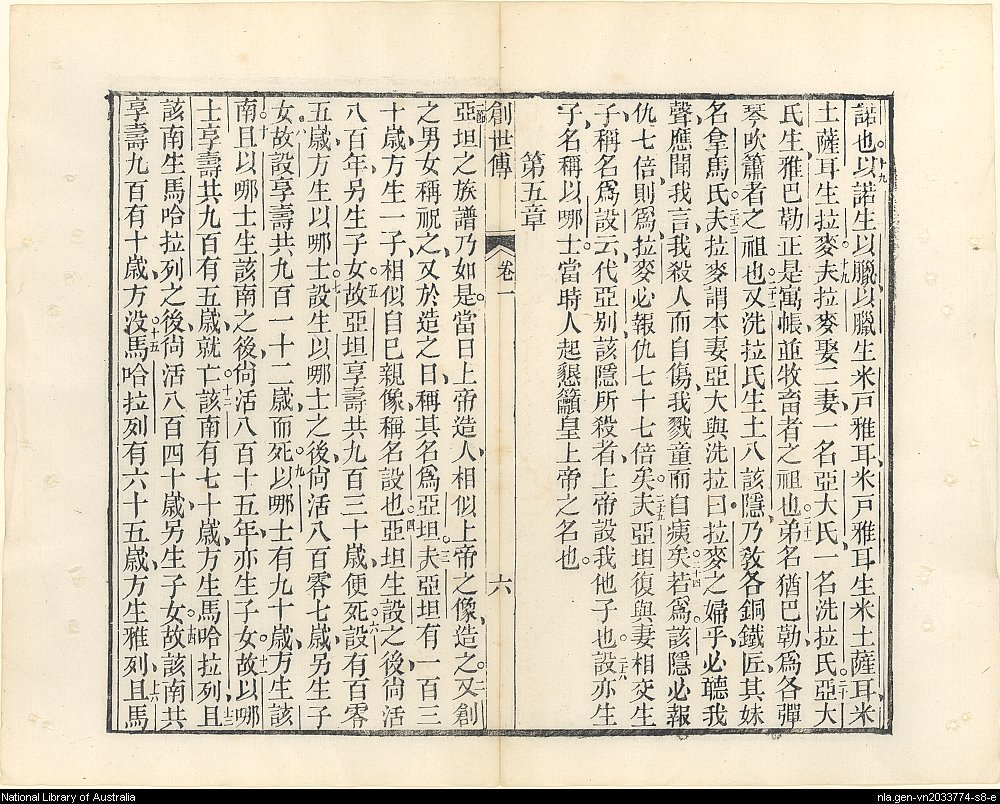 諾也○十九以諾生以臘以臘生米戸雅耳米戸雅耳生米土薩耳米
土薩耳生拉麥○十九夫拉麥娶二妻一名亞大氏一名洗拉氏○二十亞大
氏生雅巴勒正是寓帳並牧畜者之祖也○二十一弟名猶巴勒爲各彈
琴吹簫者之祖也○二十二又洗拉氏生土八該隱乃敎各銅鐵匠其妹
名拿馬氏○二十三夫拉麥謂本妻亞大與洗拉曰拉麥之婦乎必聽我
聲應聞我言我殺人而自傷我戮童而自痍矣○二十四若爲該隱必報
仇七倍則爲拉麥必報仇七十七倍矣○二十五夫亞坦復與妻相交生
子稱名爲設云代亞别該隱所殺者上帝設我他子也○二十六設亦生
子名稱以哪士當時人起懇籲皇上帝之名也○
第五章
創世傳 卷一 六
亞坦之族譜乃如是○當日上帝造人相似上帝之像造之○二又創
之男女稱祝之又於造之日稱其名爲亞坦○三夫亞坦有一百三
十歲方生一子相似自已親像稱名設也○四亞坦生設之後尙活
八百年另生子女○五故亞坦享壽共九百三十歲便死○六設有百零
五歲方生以哪士○七設生以哪士之後尙活八百零七歲另生子
女○八故設享壽共九百一十二歲而死○九以哪士有九十歲方生該
南○十且以哪士生該南之後尙活八百十五年亦生子女○十一故以哪
士享壽共九百有五歲就亡○十二該南有七十歲方生馬哈拉列○十三且
該南生馬哈拉列之後尙活八百四十歲另生子女○十四故該南共
享壽九百有十歲方没○十五馬哈拉列有六十五歲方生雅列○十六且馬
National Library of Australia
nla.gen-vn2033774-s8-e